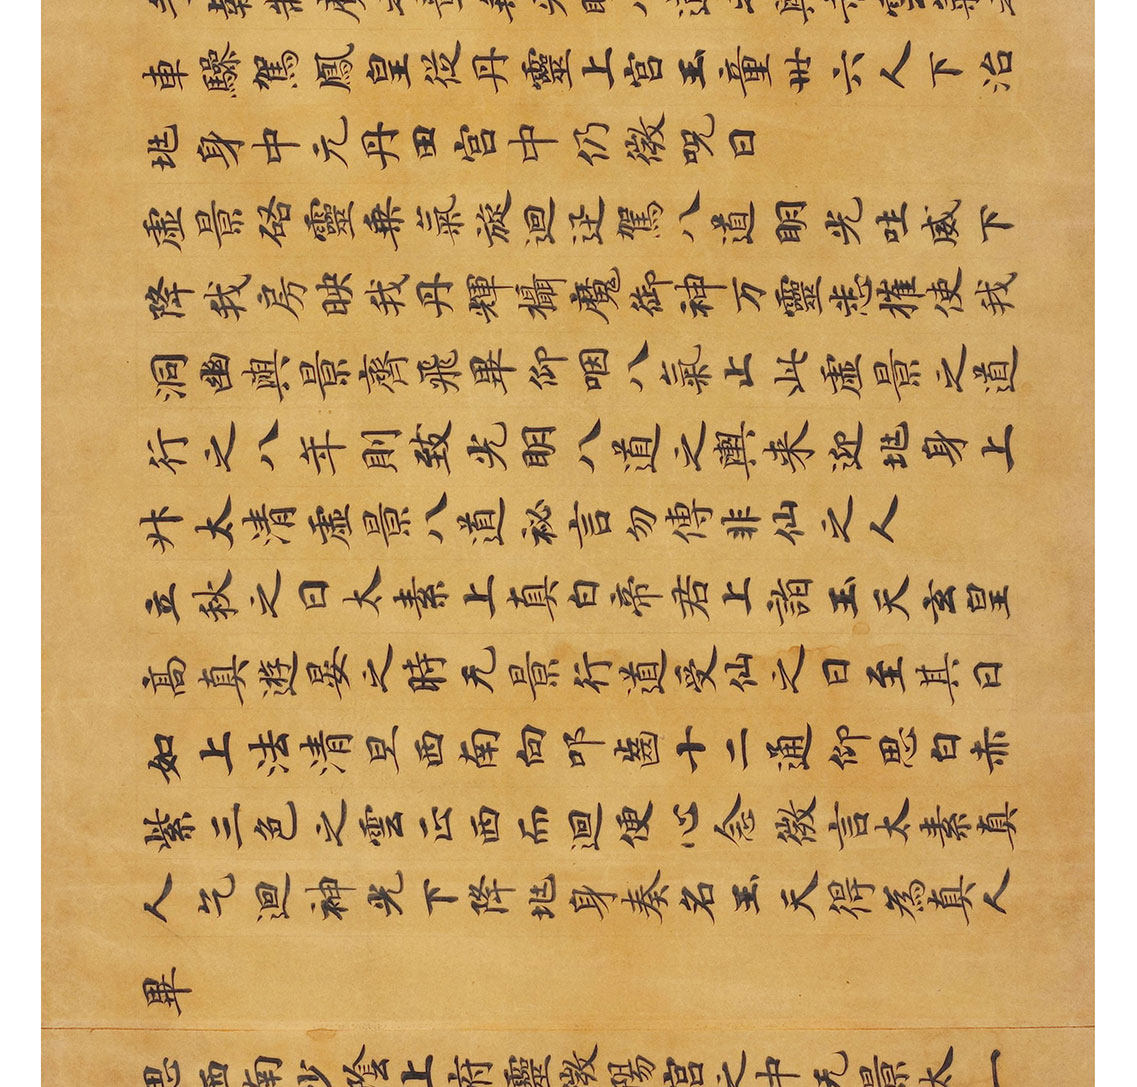 車驂駕鳳皇從丹靈上宮玉童卅六人下治
兆身中元丹田宮中仍微呪曰
虛景啓靈乗氣旋迴迅駕八道明光吐威下
降我房映我丹輝攝魔御神万靈悉摧使我
洞幽與景齊飛畢仰咽八氣止此虛景之道
行之八年則致光明八道之輿来迎兆身上
升太清虛景八道祕言勿傳非仙之人
立秋之日太素上真白帝君上詣玉天玄皇
高真遊晏之時无景行道受仙之日至其日
如上法清旦西南向叩齒十二通仰思白赤
紫三色之雲正西而迴便心念微言太素真
人乞迴神光下降兆身奏名玉天得為真人
畢
思西南少陰上府靈微陽宮之中无景太一